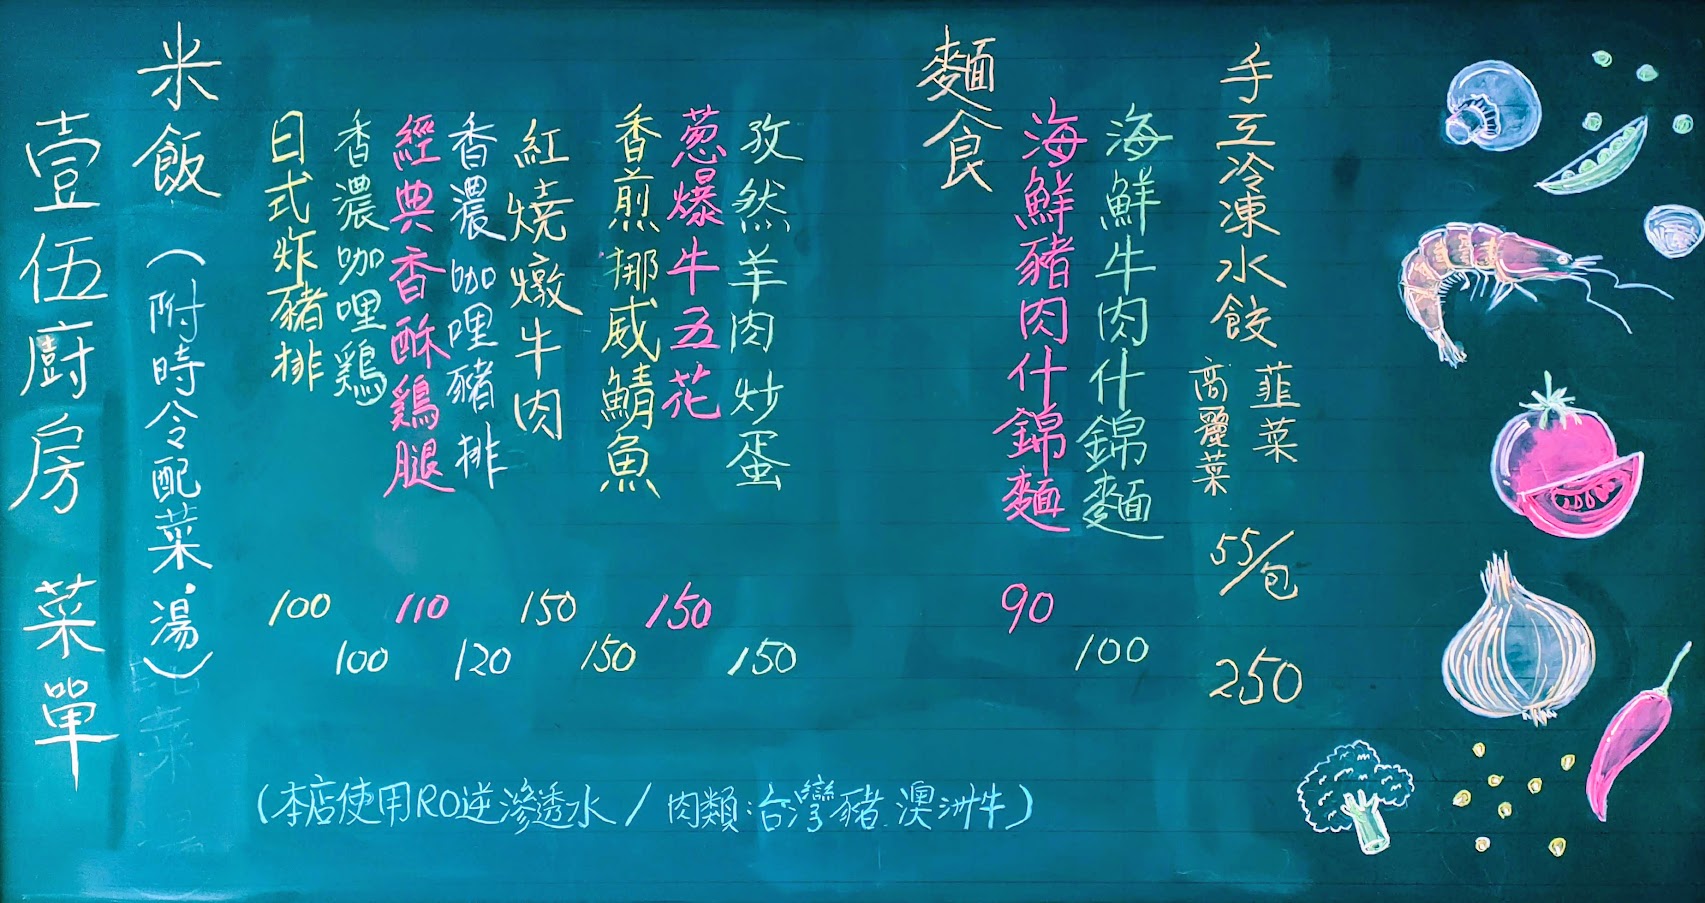 壹伍廚房 菜單
米飯(附時令配菜.湯)
日式炸豬排 100
香濃咖哩鷄 100
經典香酥鷄腿 110
香濃咖哩豬排 120
紅燒燉牛肉 150
香煎挪威鯖魚 150
葱爆牛五花 150
孜然羊肉炒蛋 150
麵食
海鮮豬肉什錦麵 90
海鮮牛肉什錦麵 100
手工冷凍水餃
高麗菜
韮菜
55/包
250
(本店使用RO逆滲透水/肉類:台灣豬.澳洲牛)